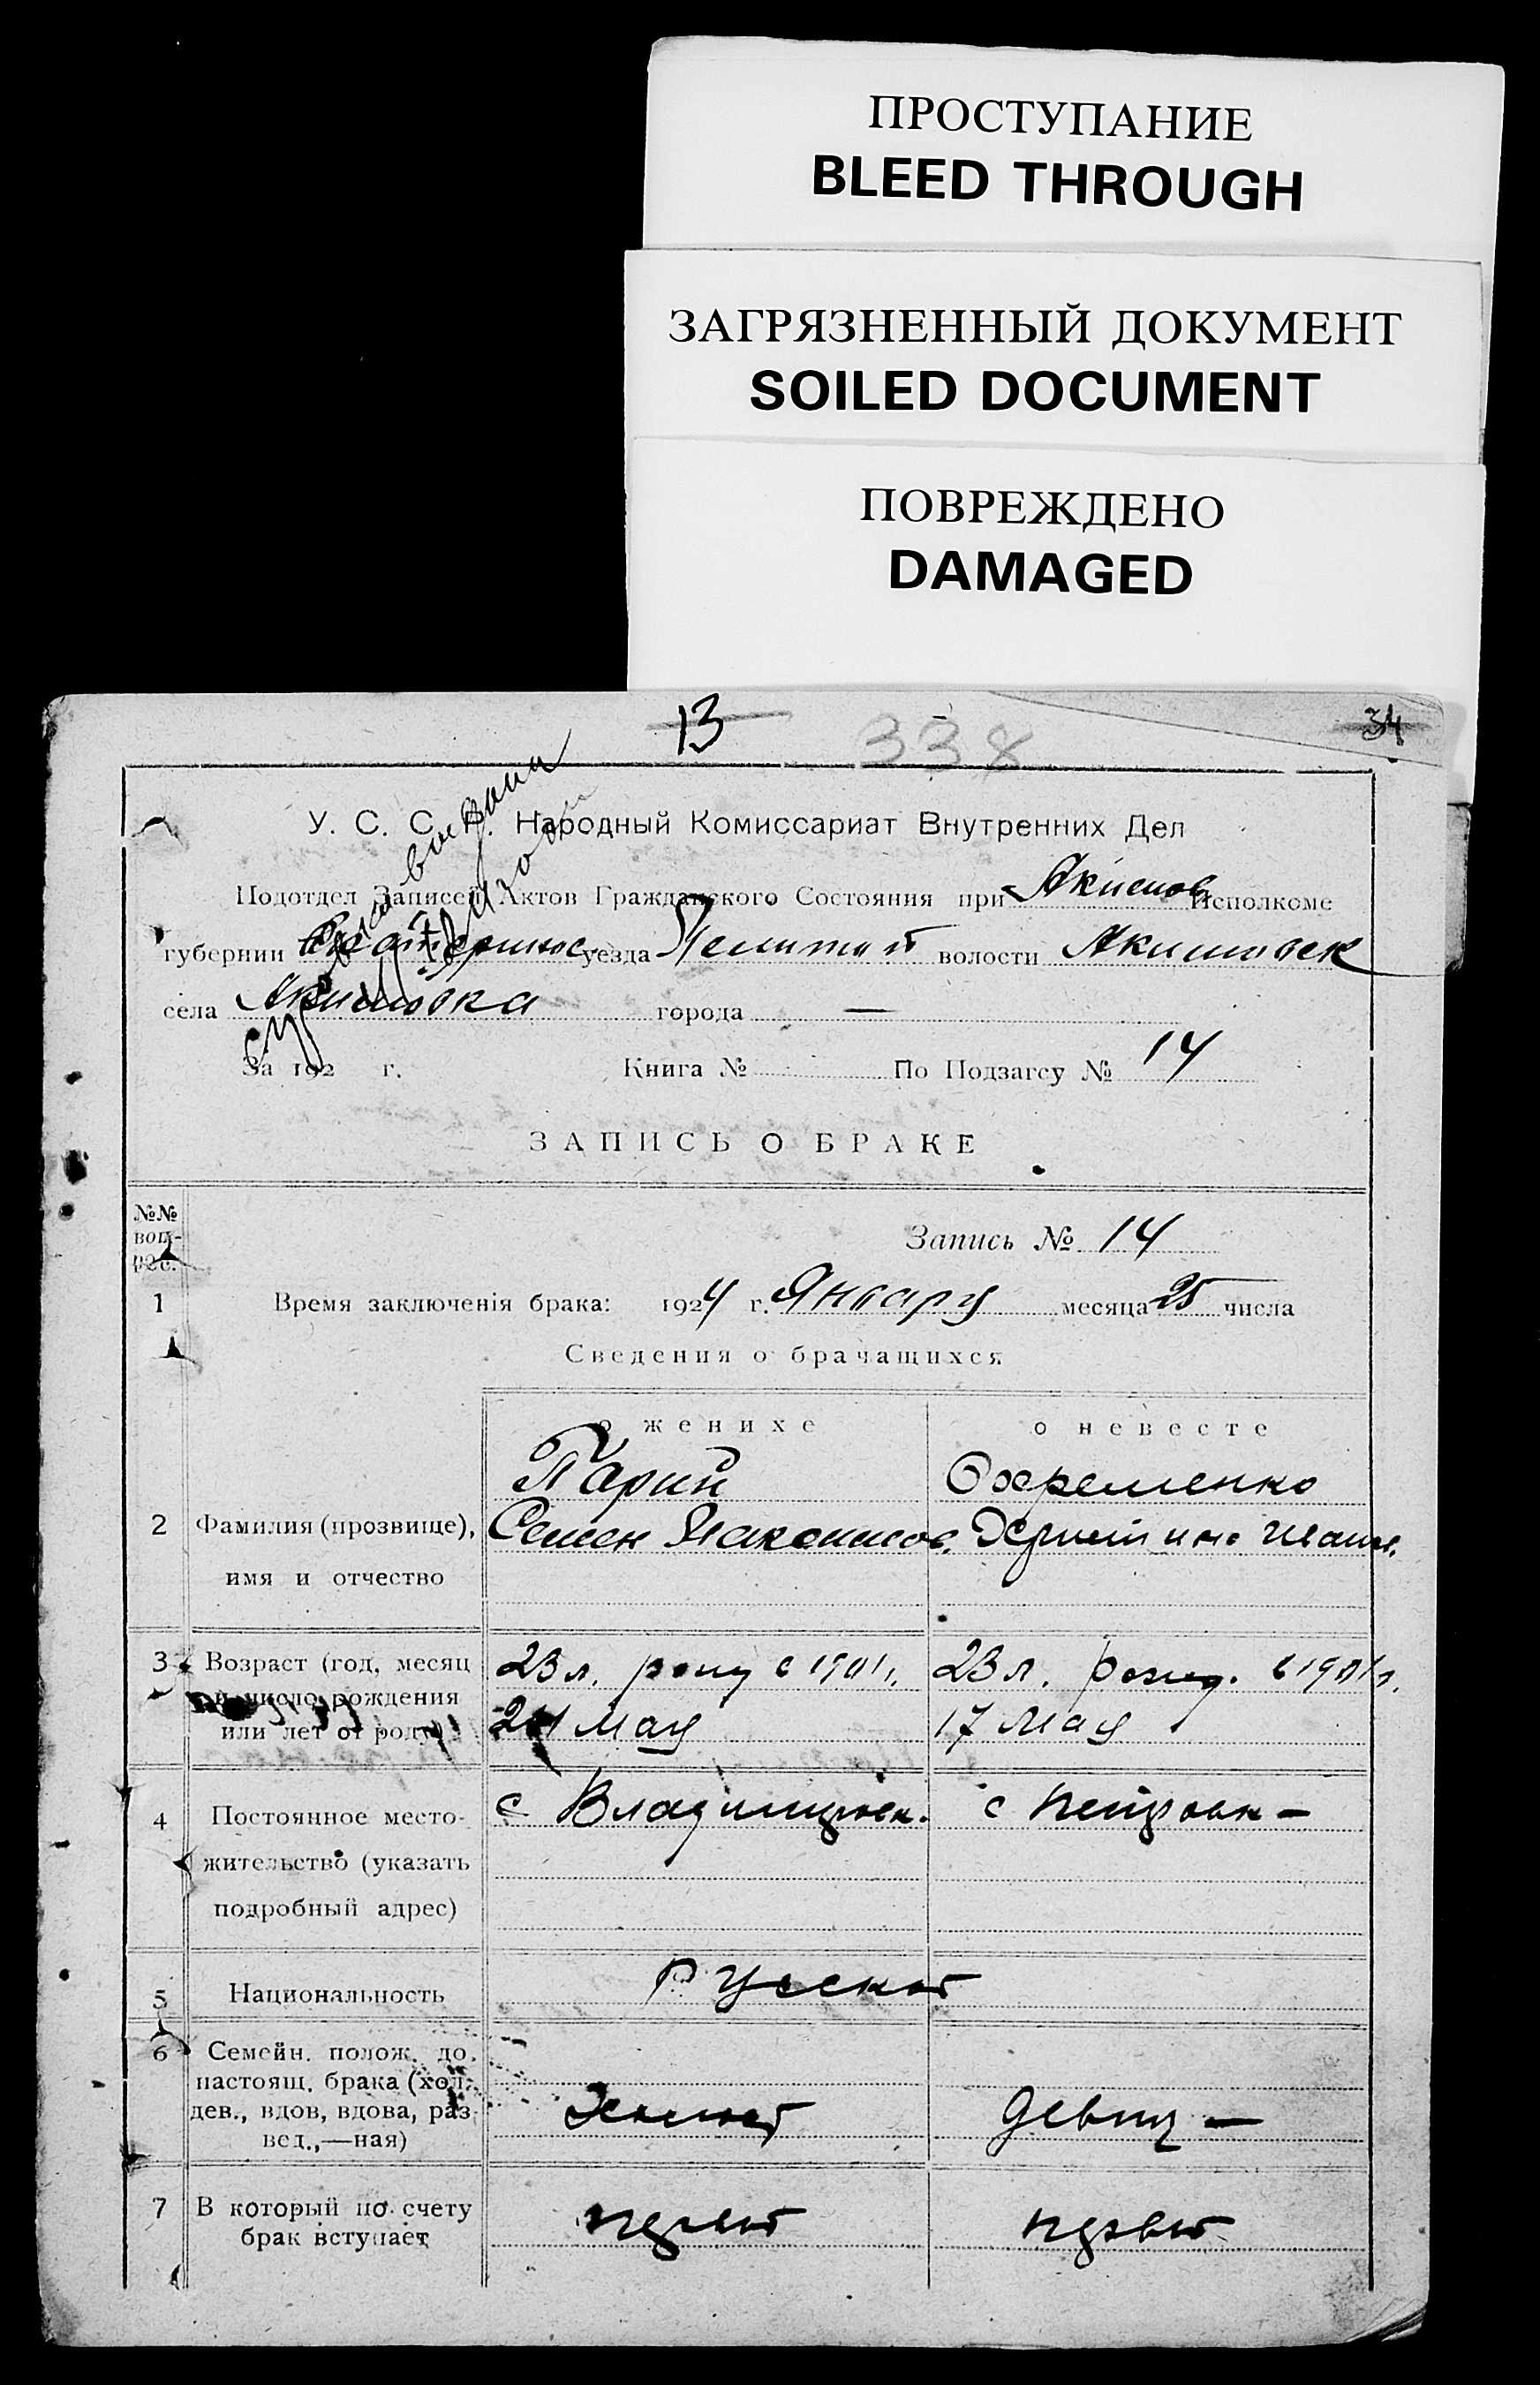 ПРОСТУПАНИЕ
BLEED THROUGH
ЗАГРЯЗНЕННЫЙ ДОКУМЕНТ
SOILED DOCUMENT
ПОВРЕЖДЕНО
DAMAGED
13 338 34
У. С. С. Р. Народный Комиссариат Внутренних Дел
Подотдел Записей Актов Гражданского Состояния при Акимов Исполкоме
губернии Екатеринос уезда Мелитоп волости Акимовск
села Акимовка города —
За 192 г. Книга № По Подзагсу № 14
ЗАПИСЬ О БРАКЕ
№№ воп-рос.
Запись № 14
1 Время заключенія брака: 1924 г. Январу месяца 25 числа
Сведения о брачащихся
о женихе о невесте
Парий Охременко
2 Фамилия (прозвище), Семен Максимов. Христина Иванов.
имя и отчество
3 Возраст (год, месяц 23 л. рожд в 1901 г. 23 л. рожд. в 1901 г.
и число рождения
или лет от роду) 24 Мая 17 Мая
4 Постоянное место- с Владимировк. с Петровк —
жительство (указать
подробный адрес)
5 Национальность Русские
6 Семейн. полож. до
настоящ. брака (хол.
дев., вдов, вдова, раз- Холост Девиц —
вед.,—ная)
7 В который по счету первый первый
брак вступает